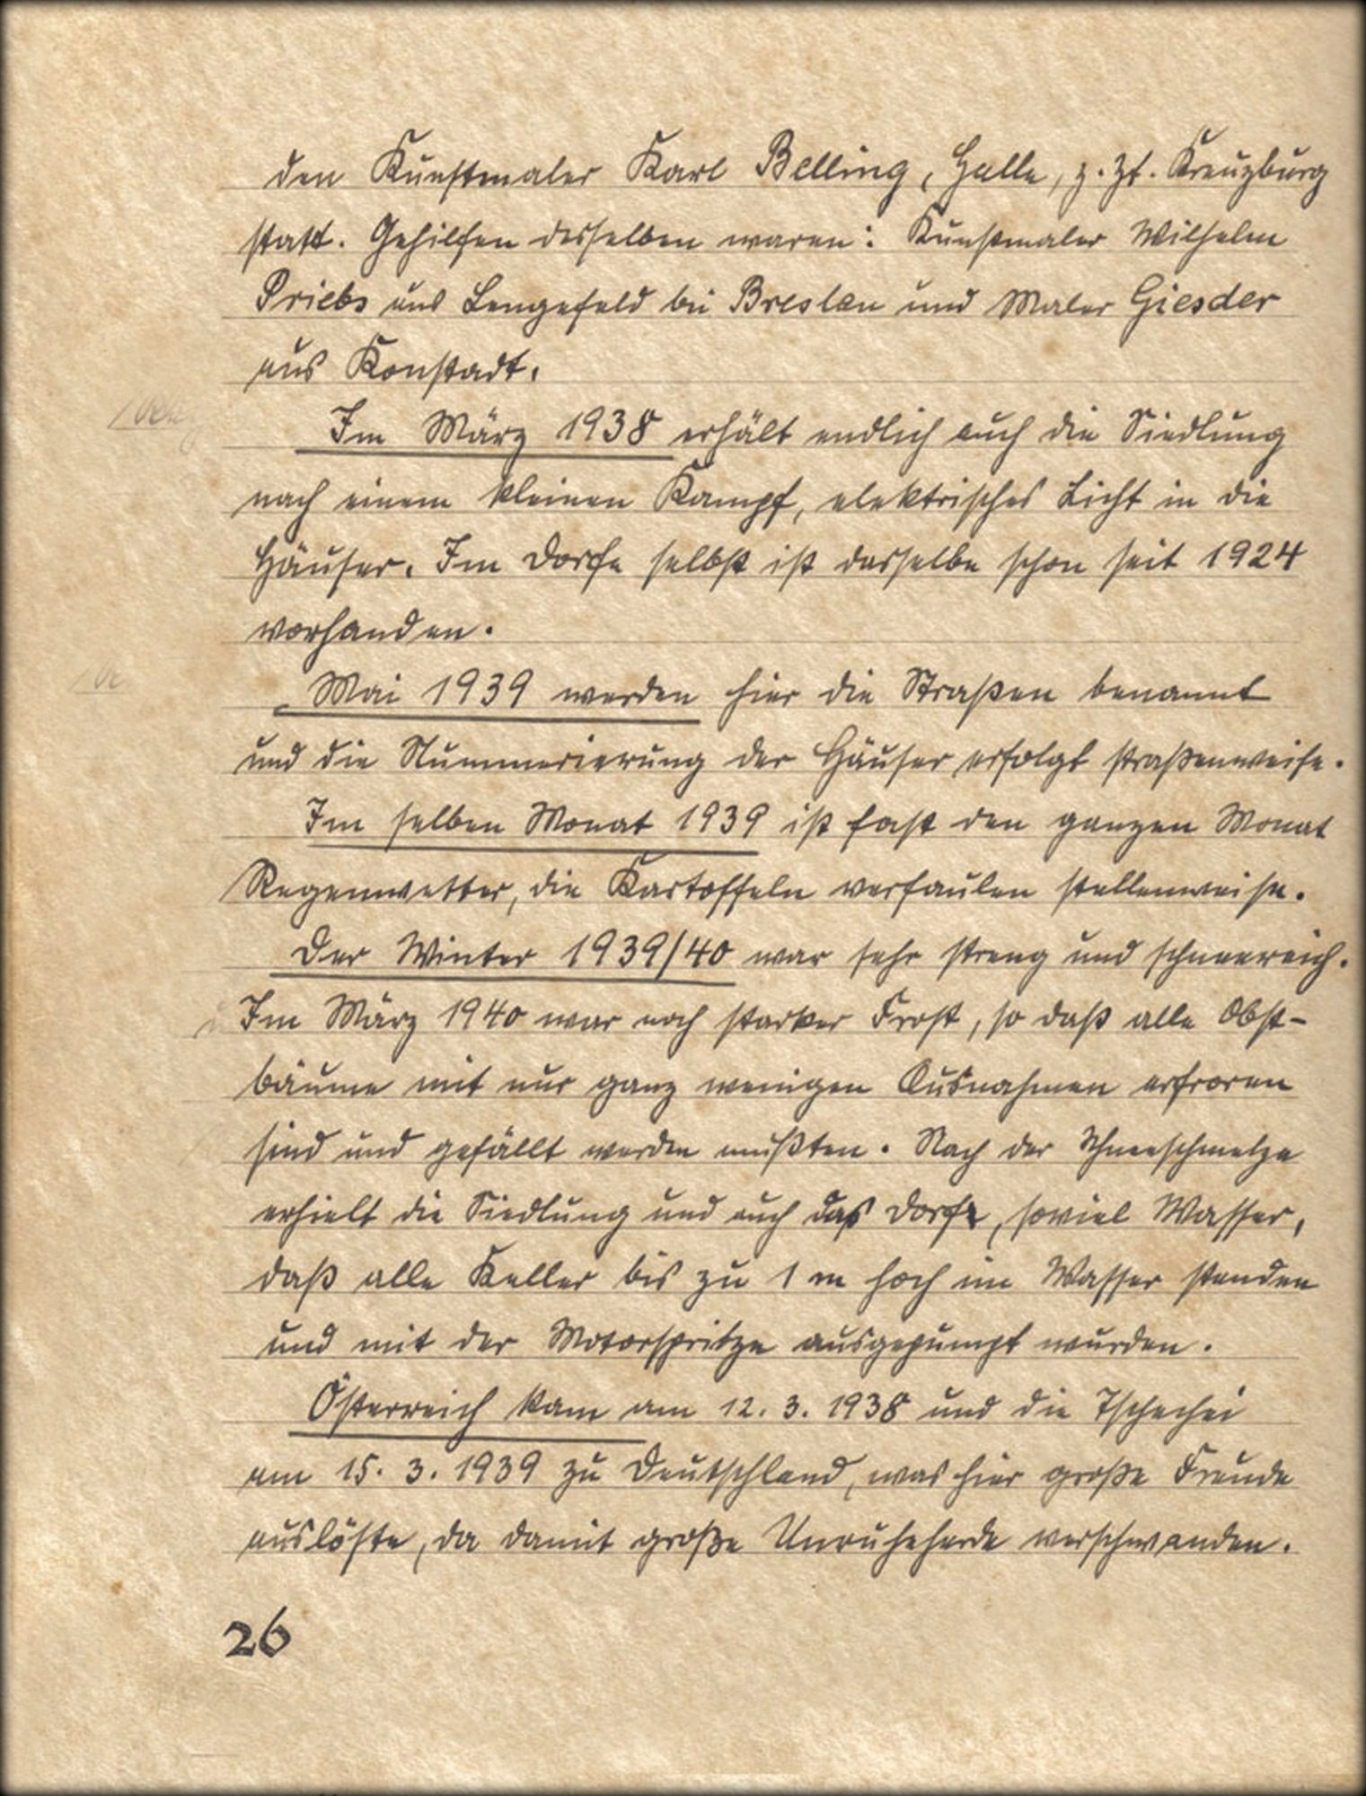 den Kunstmaler Karl Belling, Halle, z. Zt. Kreuzburg
statt. Gehilfen desselben waren: Kunstmaler Wilhelm
Priebs aus Lengefeld bei Breslau und Maler Giesder
aus Konstadt.
Im März 1938 erhält endlich auch die Siedlung
nach einem kleinen Kampf, elektrisches Licht in die
Häuser. Im Dorfe selbst ist dasselbe schon seit 1924
vorhanden.
Mai 1939 werden hier die Straßen benannt
und die Nummerierung der Häuser erfolgt straßenweise.
Im selben Monat 1939 ist fast den ganzen Monat
Regenwetter, die Kartoffeln verfaulen stellenweise.
Der Winter 1939/40 war sehr streng und schneereich.
Im März 1940 war noch starker Frost, so daß alle Obst-
bäume mit nur ganz wenigen Ausnahmen erfroren
sind und gefällt werden mußten. Nach der Schneeschmelze
erhielt die Siedlung und auch das Dorfe, soviel Wasser,
daß alle Keller bis zu 1 m hoch im Wasser standen
und mit der Motorspritze ausgepumpt wurden.
Österreich kam am 12. 3. 1938 und die Tschechei
am 15. 3. 1939 zu Deutschland, was hier große Freude
auslöste, da damit große Unruheherde verschwanden.
26